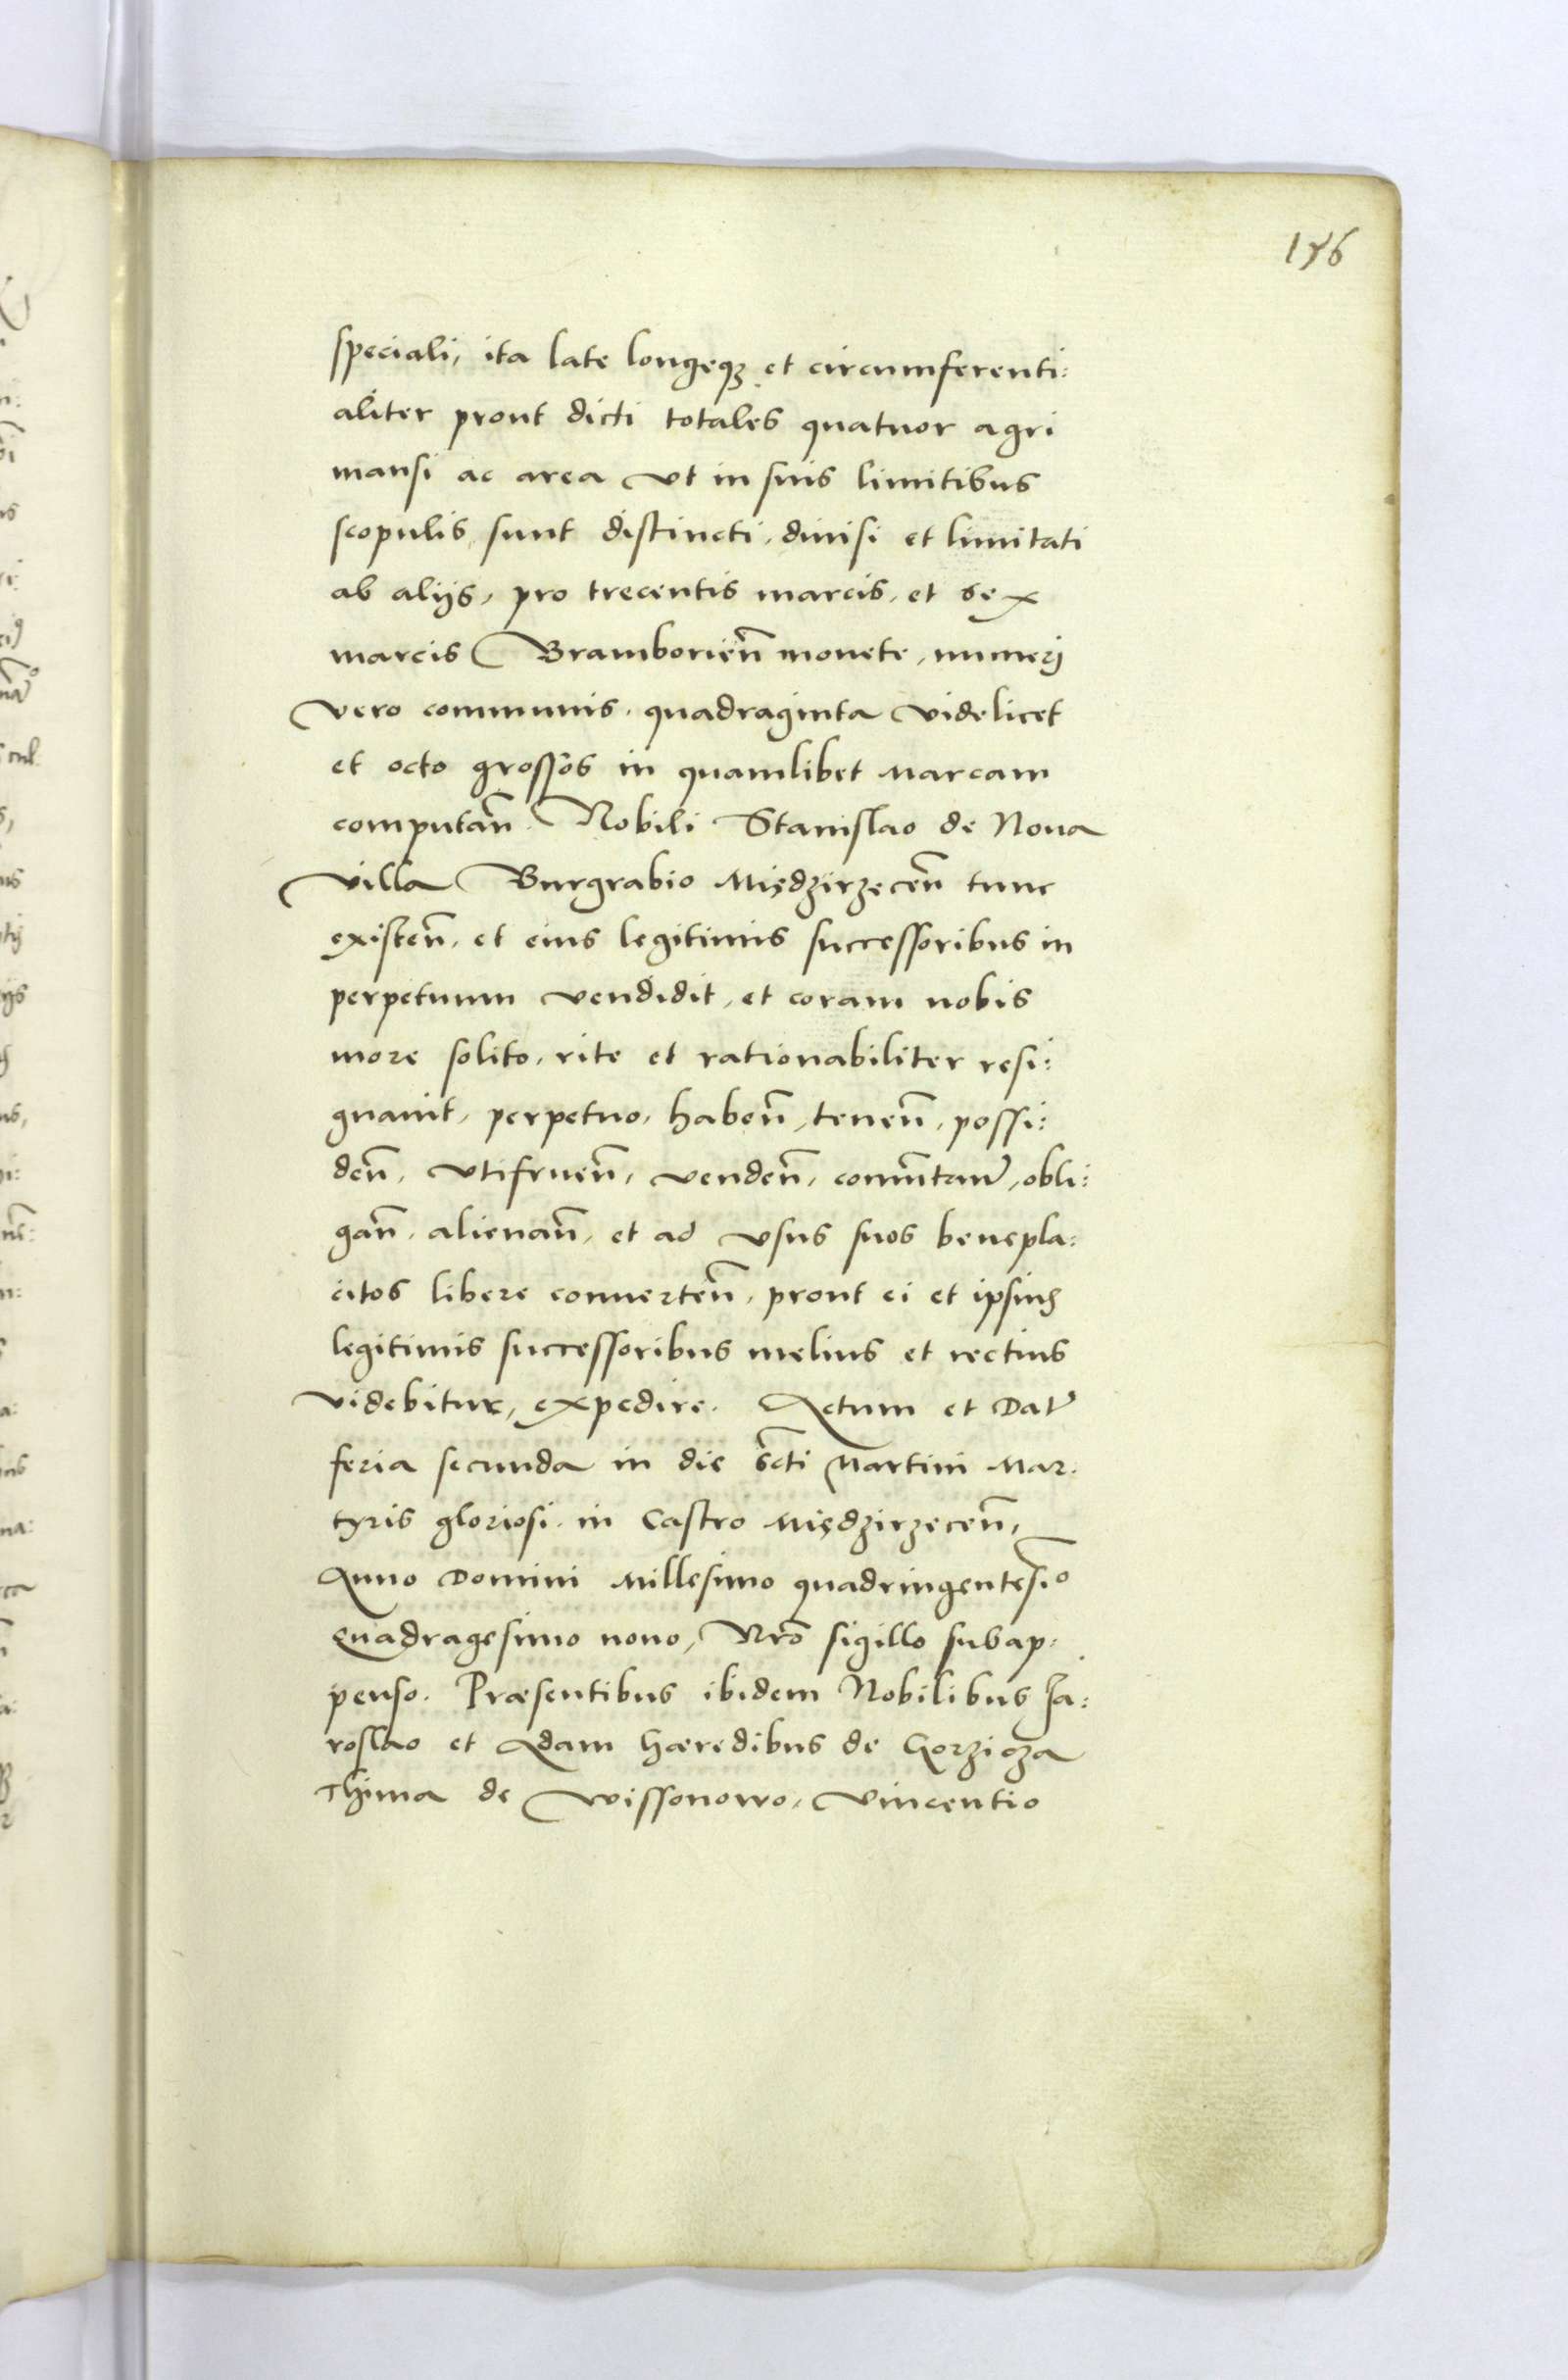 176
speciali, ita late longeqꝫ et circumferenti:
aliter prout dicti totales quatuor agri
mansi ac area vt in suis limitibus
scopulis sunt distincti, diuisi et limitati
ab alijs, pro trecentis marcis, et sex
marcis Bramborien̄ monete, numerj
vero communis, quadraginta videlicet
et octo grossos in quamlibet marcam
computan̄. Nobili Stanislao de Noua
villa Burgrabio Międzirzecen̄ tunc
existen̄, et eius legitimis successoribus in
perpetuum vendidit, et coram nobis
more solito, rite et rationabiliter resi:
gnauit, perpetuo, haben̄, tenen̄, possi:
den̄, vtifruen̄, venden̄, commutan̄, obli:
gan̄, alienan̄, et ad vsus suos benepla:
citos libere conuerten̄, prout ei et ipsius
legitimis successoribus melius et rectius
videbitur, expedire. Actum et Dat̄
feria secunda in die Scti Martini Mar:
tyris gloriosi. in Castro Międzirzecen̄,
Anno Domini Millesimo quadringentesīo
quadragesimo nono, Nr̄o sigillo subap:
penso. Præsentibus ibidem Nobilibus Ja:
roslao et Adam hæredibus de Gorzicza
Thima de Wissonowo, Vincentio